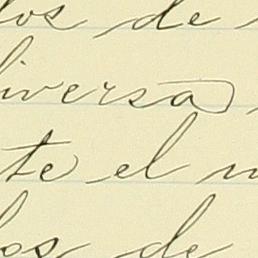 los de
diversa
te el
los de